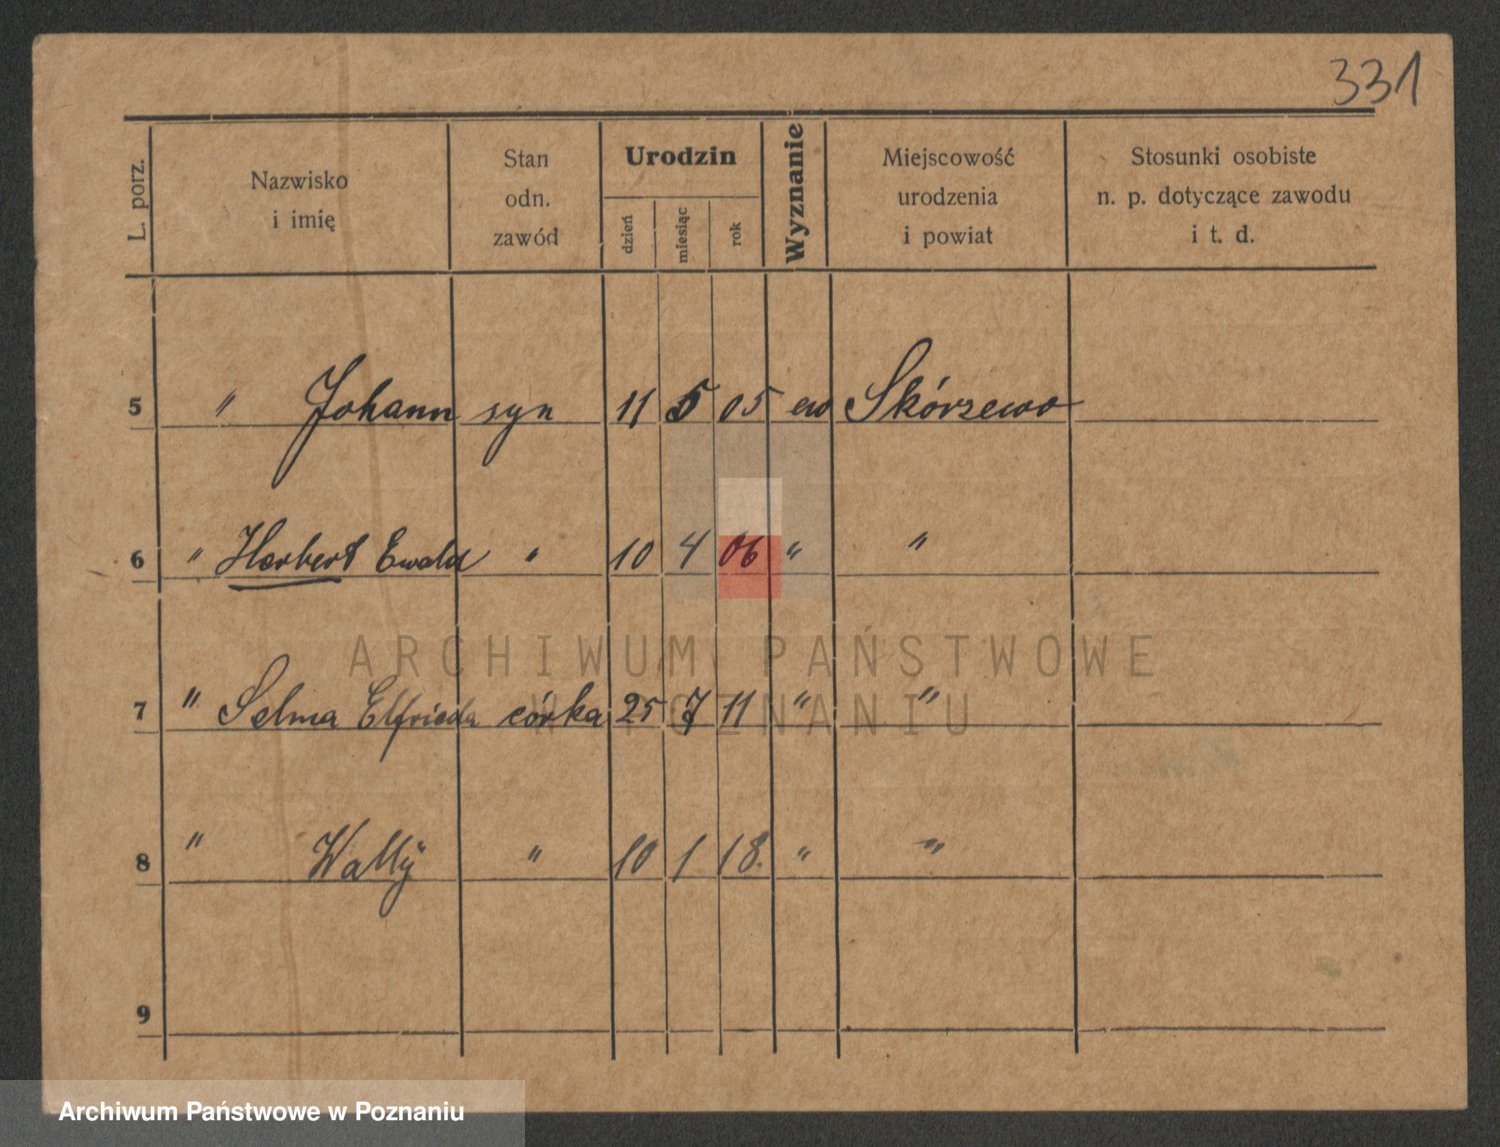 331
L. porz.
Nazwisko
i imię
Stan
odn.
zawód
Urodzin
dzień
miesiąc
rok
Wyznanie
Miejscowość
urodzenia
i powiat
Stosunki osobiste
n. p. dotyczące zawodu
i t. d.
5 " Johann syn 11 5 05 ew Skórzewo
6 " Herbert Ewald " 10 4 06 " "
7 " Selma Elfrieda córka 25 7 11 " "
8 " Wally " 10 1 18. " "
9
ARCHIWUM PAŃSTWOWE
W POZNANIU
Archiwum Państwowe w Poznaniu